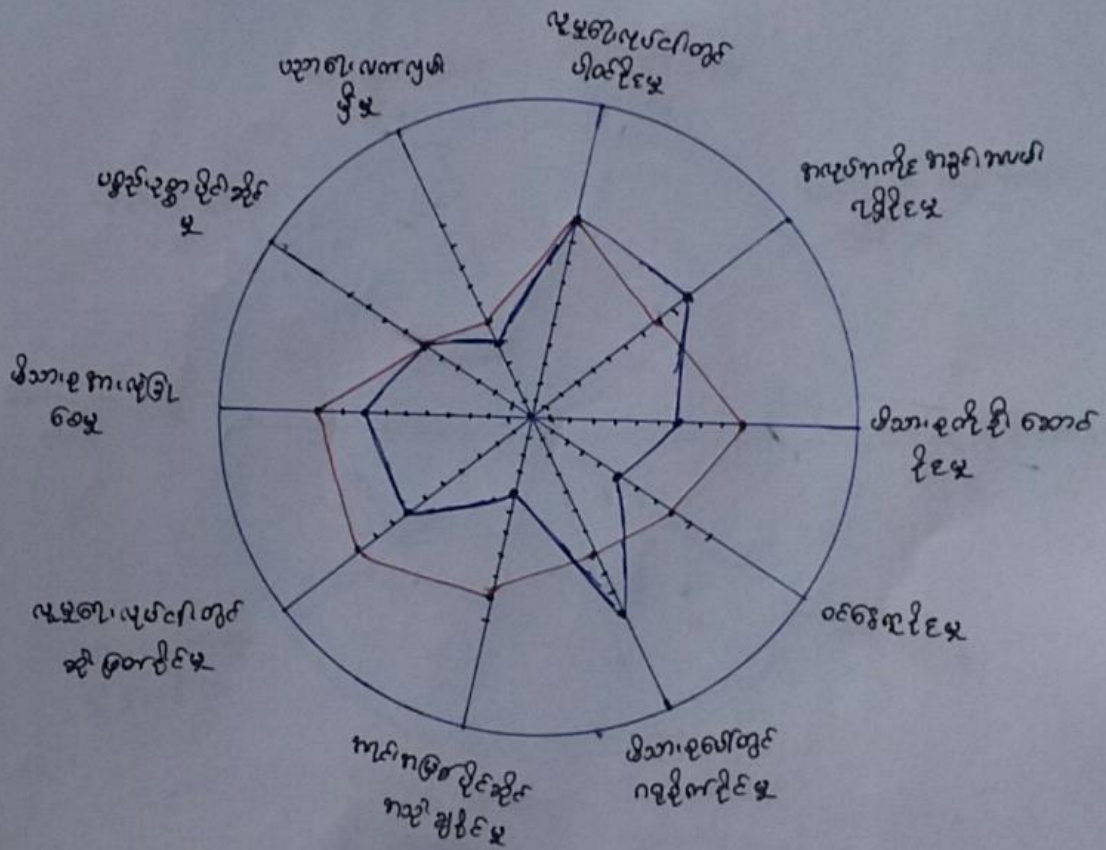 လူမှုရေးလုပ်ငန်းတွင်
ပါဝင်နိုင်မှု
အလုပ်အကိုင် အခွင့်အလမ်း
ရရှိနိုင်မှု
မိသားစုကို ဦးဆောင်
နိုင်မှု
ဝင်ငွေရှာနိုင်မှု
မိသားစုပေါ်တွင်
ဂရုစိုက်နိုင်မှု
အရင်းအမြစ်ပိုင်ဆိုင်
အသုံးချနိုင်မှု
လူမှုရေးလုပ်ငန်းတွင်
ဆုံးဖြတ်နိုင်မှု
မိသားစု အားလုံးခြုံ
ဝေမှု
ပစ္စည်းဥစ္စာ ပိုင်ဆိုင်
မှု
ပညာရေး လက်လှမ်း
မှီမှု